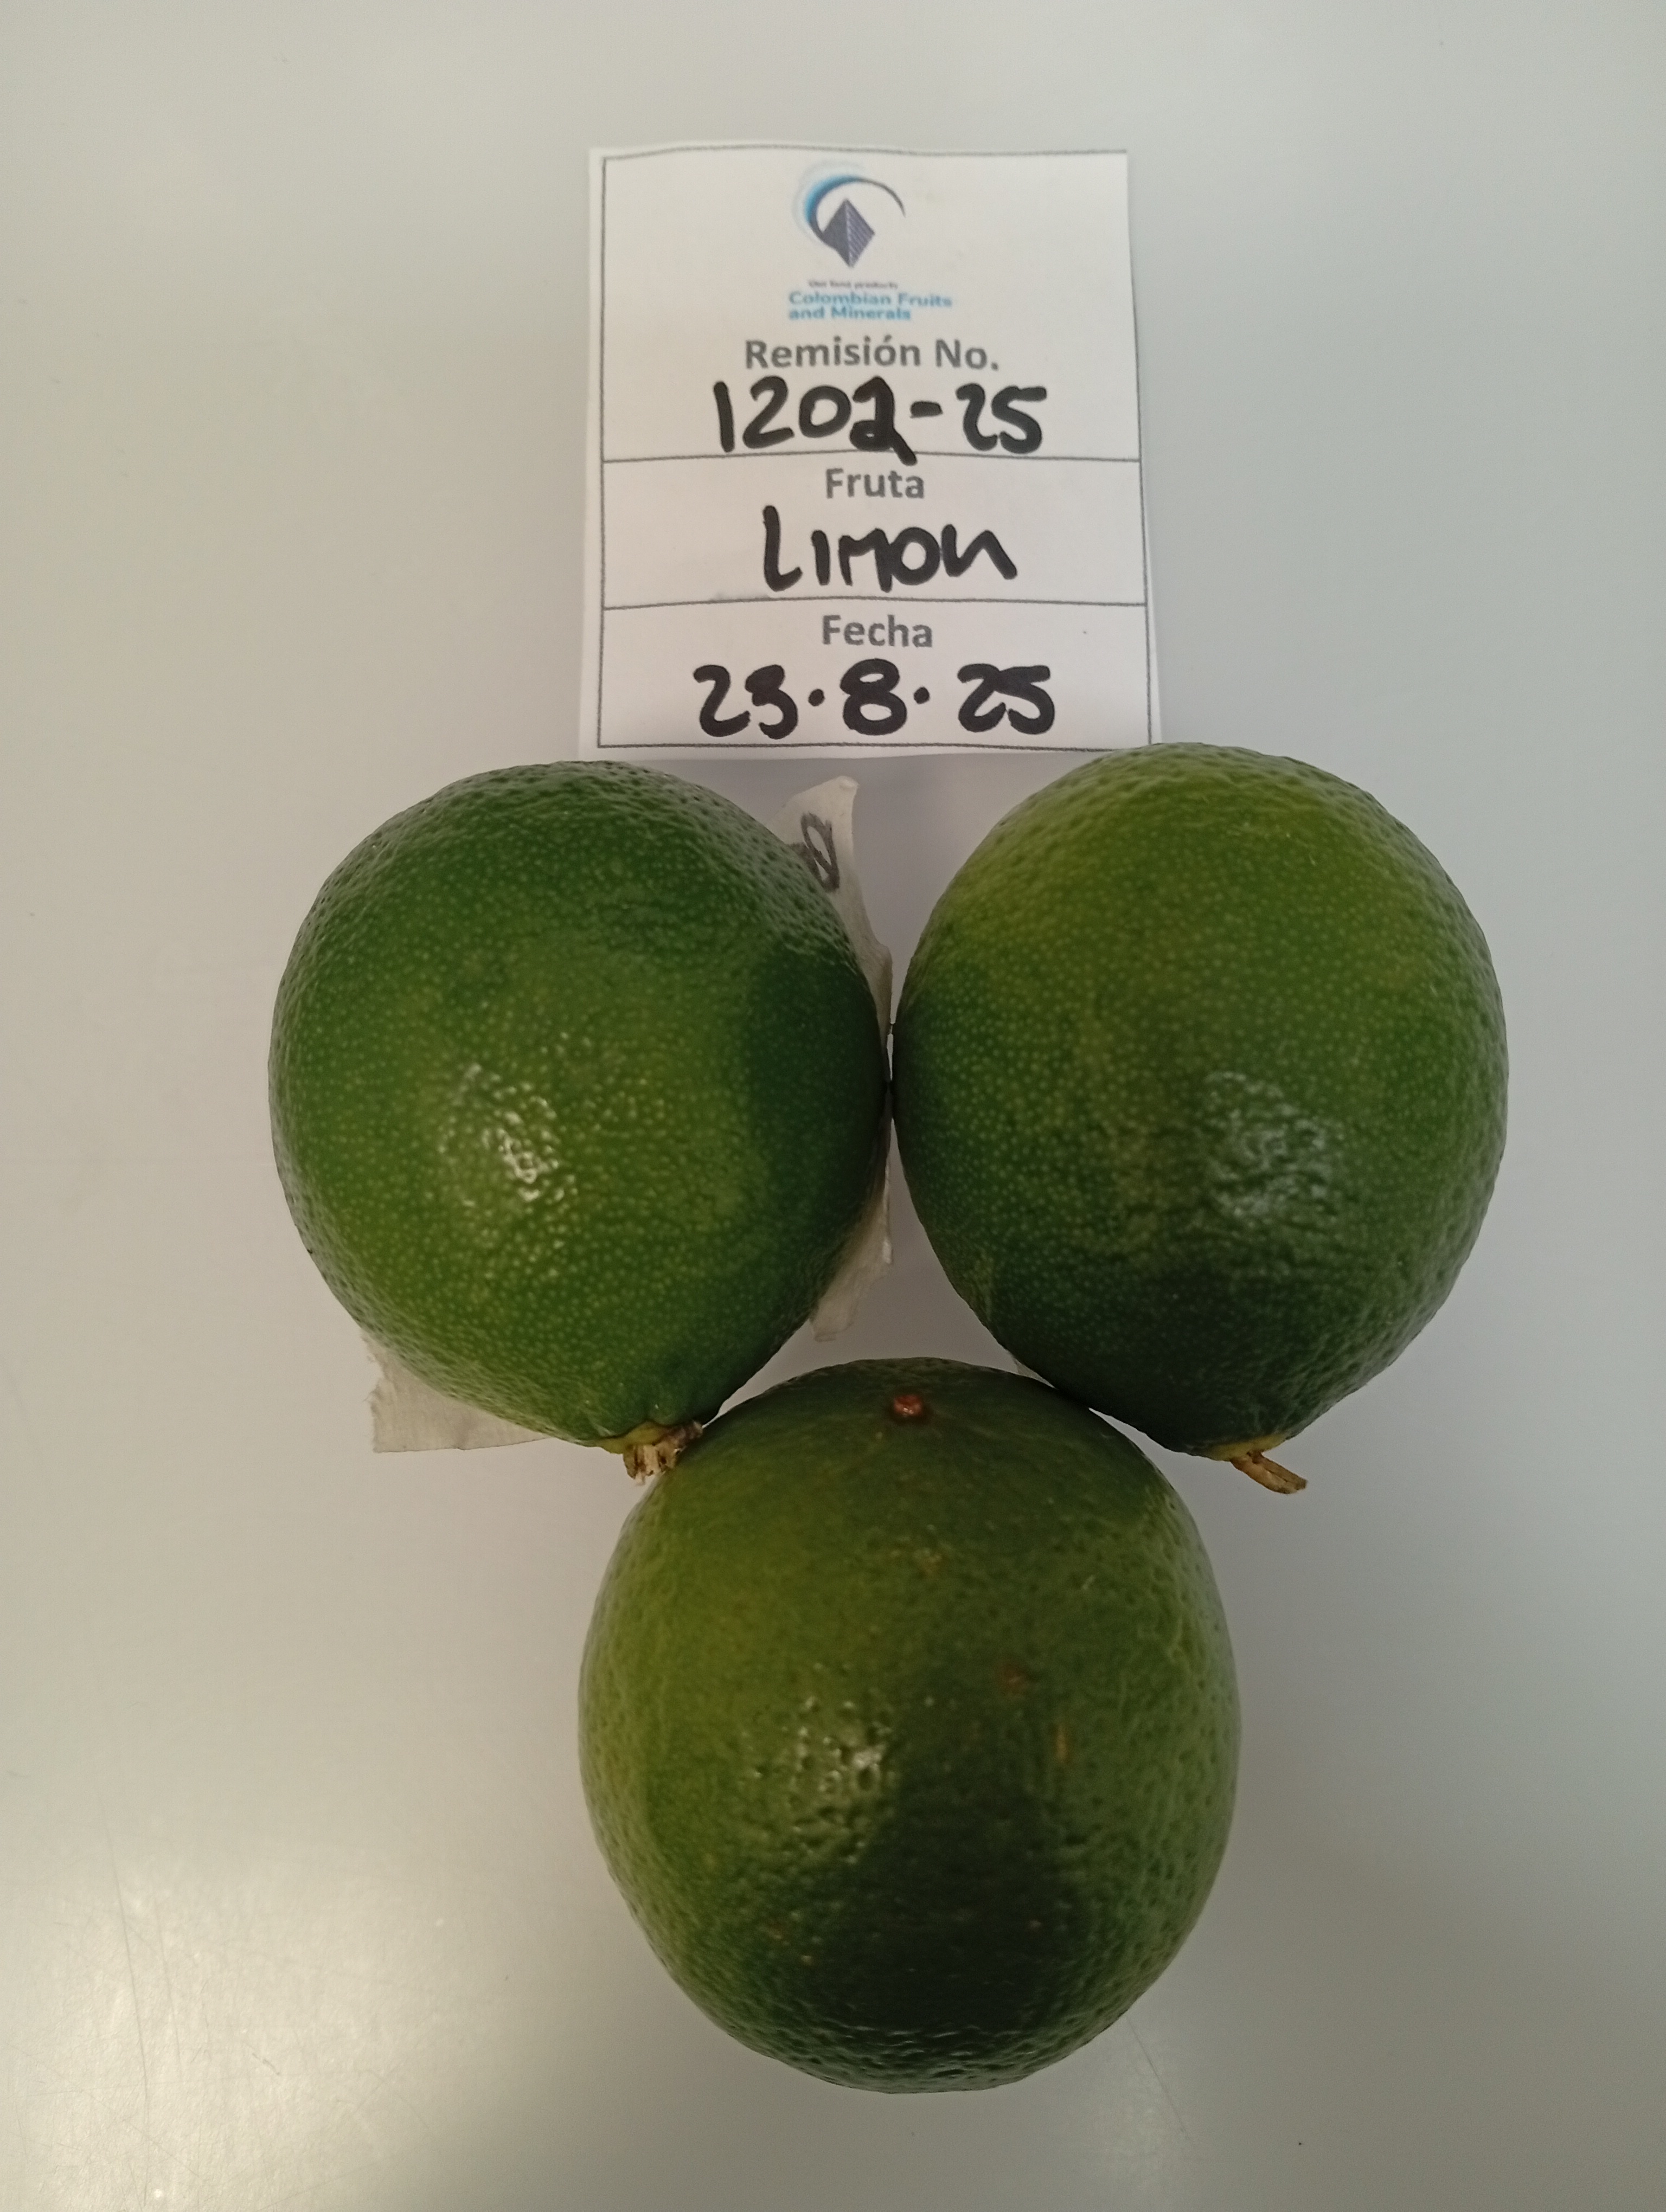 Our best products
Colombian Fruits
and Minerals
Remisión No.
1202-25
Fruta
Limon
Fecha
23.8.25